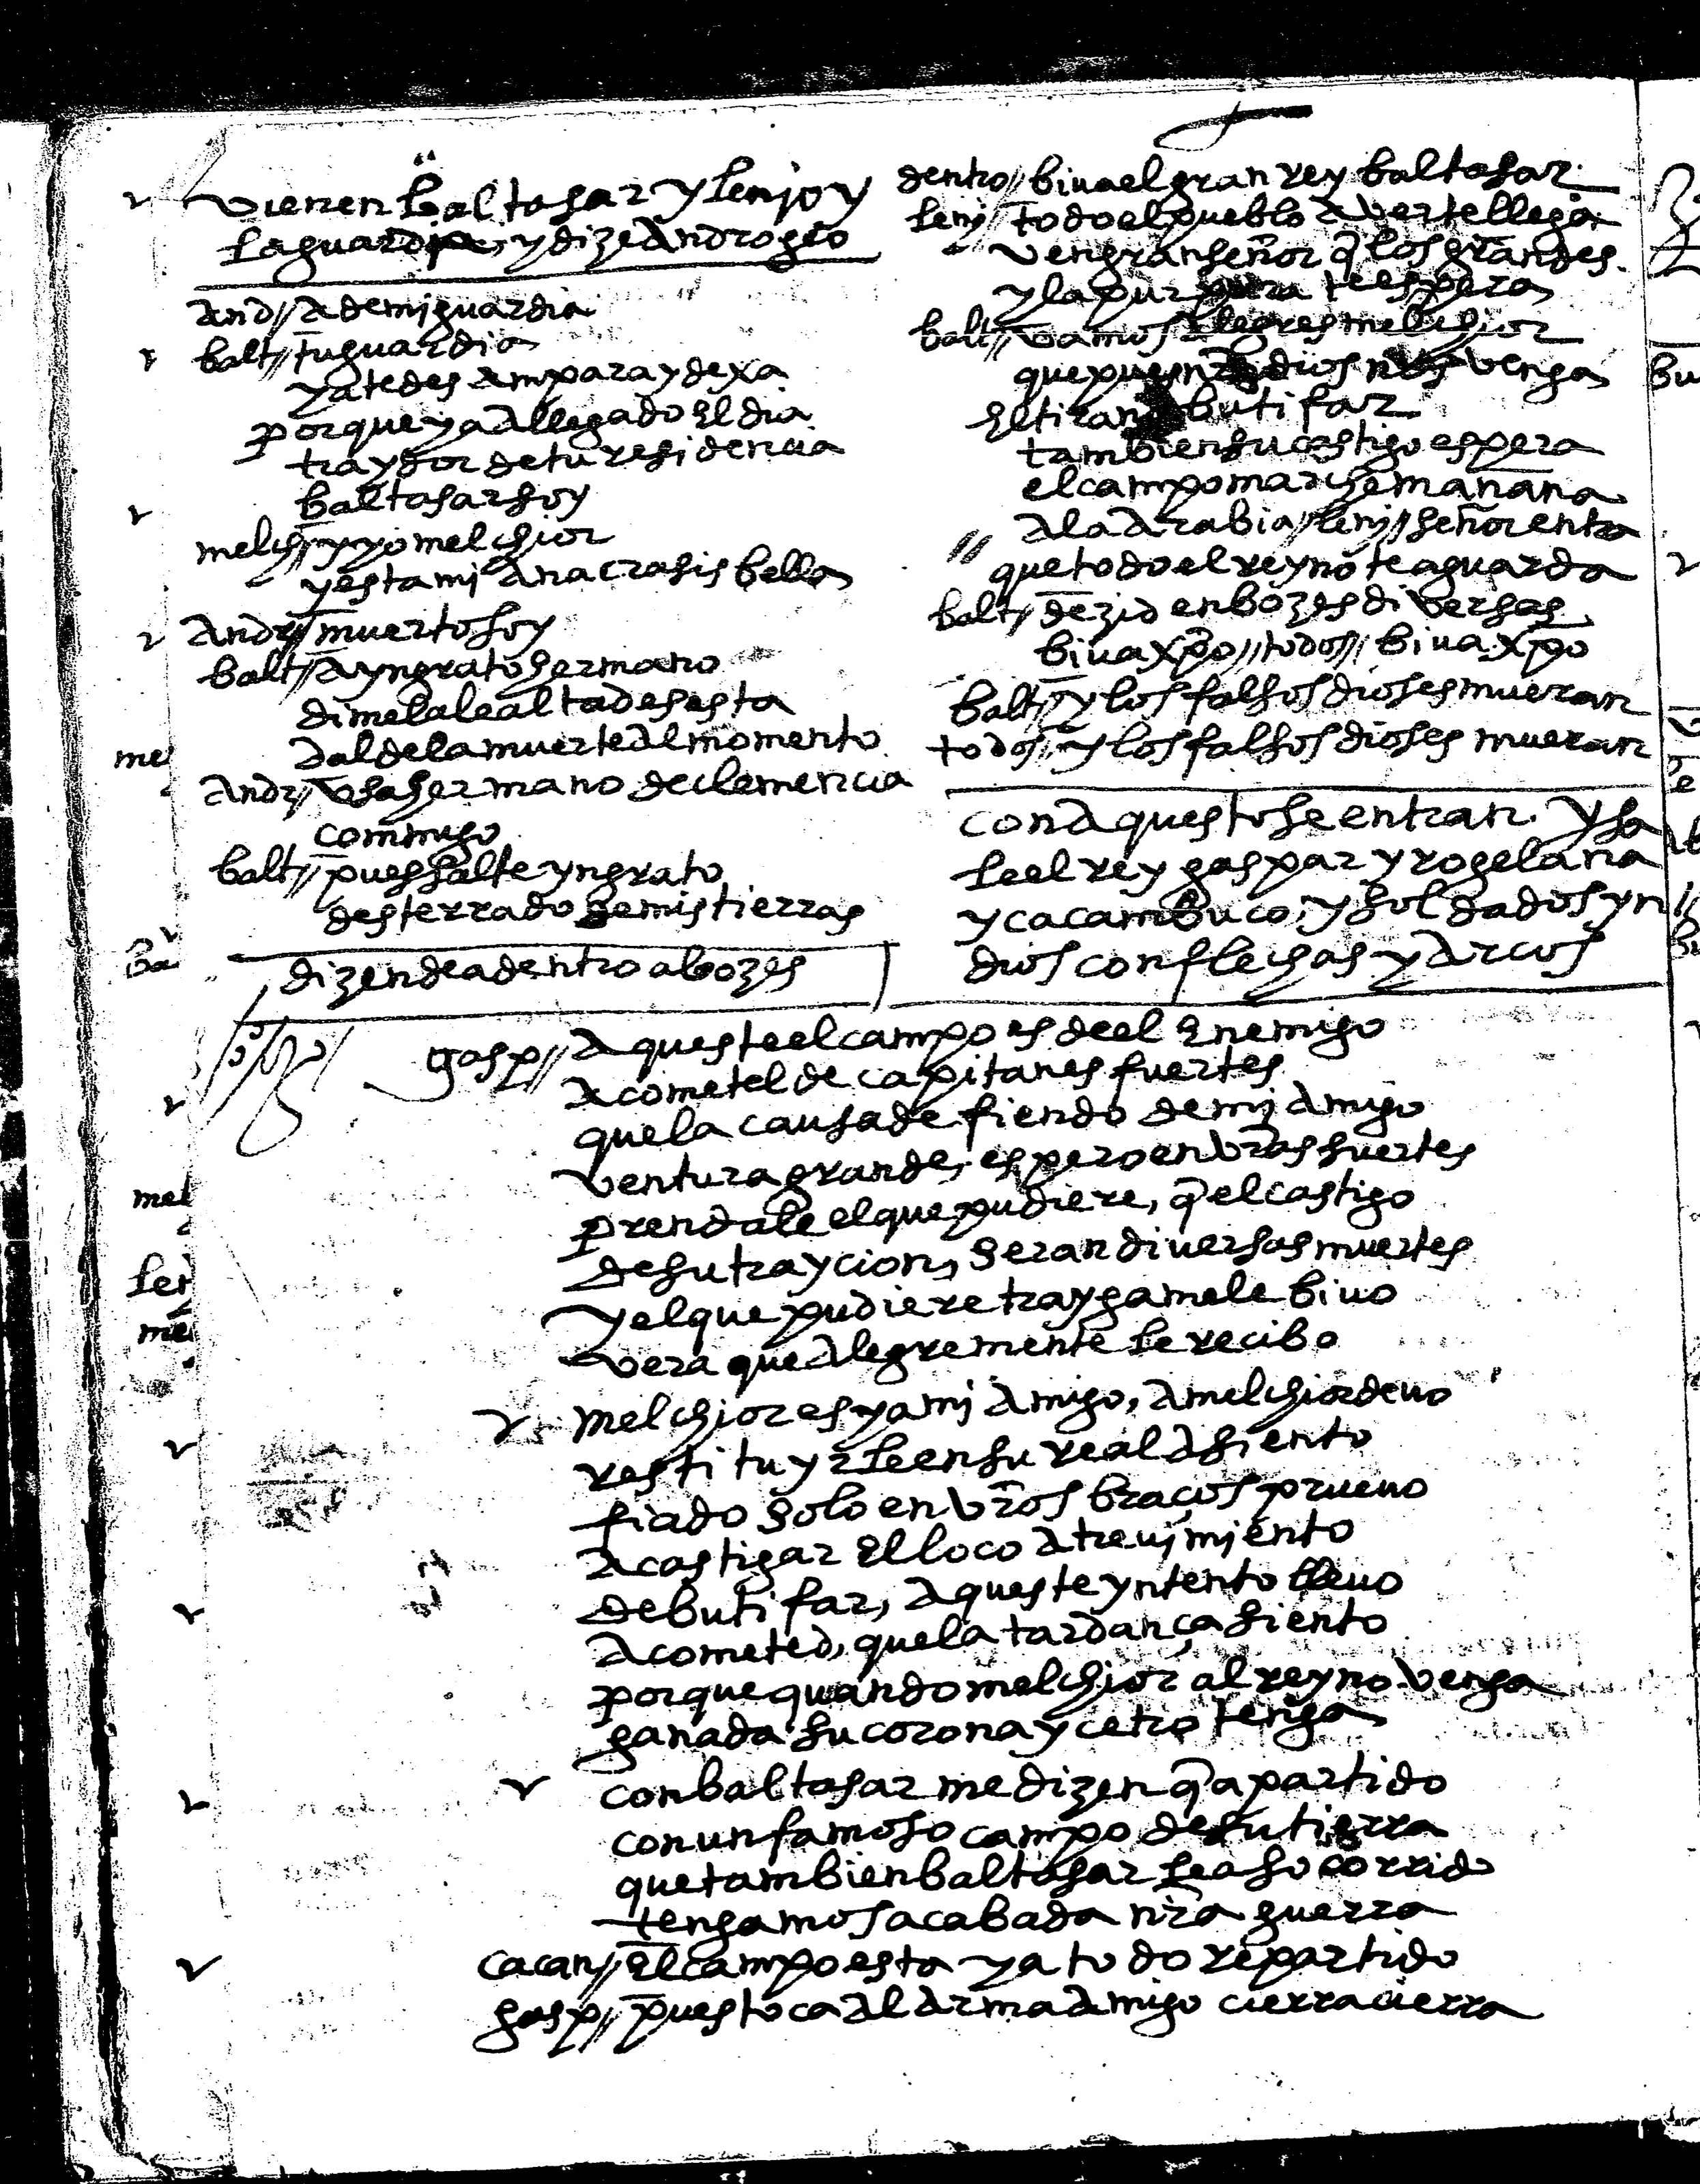 vienen baltasar y lenjo y
la guardia, y dize Androgeo
And// A de mi guardia
balt// tu guardia
ya te desampara y dexa
porque ya a llegado El dia
traydor de tu residencia
baltasar soy
melch// y yo melchior
y esta mi Anacrasis bella
Andr// muerto soy
balt// A yngrato hermano
dime la lealtad es esta
dalde la muerte Al momento
Andr// Vsa hermano de clemencia
commigo
balt// pues salte yngrato
desterrado de mis tierras
dizen de adentro a bozes
dentro// biua el gran rey baltasar
lenj// todo el pueblo A verte llega
ven gran señor q̃ los grandes
y la purpura te espera
balt// vamos Alegres melchior
que pues nr̃o dios nos venga
El tirano butifar
tambien su castigo espera
el campo marche mañana
A la Arabia // lenj // señor entra
// que todo el reyno te aguarda
balt// dezid en bozes diversas
biua xp̃o // todos // biua xp̃o
balt// y los falsos dioses mueran
todos// y los falsos dioses mueran
con Aquesto se entran. y sa
le el rey gaspar y rogelana
y cacambuco, y soldados yn
dios con flechas y Arcos
gasp// Aqueste el campo es de el Enemigo
Acometelde capitanes fuertes
que la causa defiendo de mj Amigo
ventura grande, espero en vr̃as suertes
prendale el que pudiere, q̃ el castigo
de su traycion, seran diuersas muertes
y el que pudiere traygamele biuo
vera que Alegremente le recibo
melchior es ya mj Amigo, A melchior deuo
restituyrle en su real Asiento
fiado solo en vr̃os braços prueuo
A castigar El loco Atreujmiento
de butifar, Aqueste yntento lleuo
Acometed, que la tardança siento
porque quando melchior al reyno venga
ganada su corona y cetro tenga
con baltasar me dizen q̃ a partido
con un famoso campo de su tierra
que tambien baltasar le a socorrido
tengamos acabada nr̃a guerra
cacan// El campo esta ya todo repartido
gasp// pues toca Al Arma Amigo cierra cierra